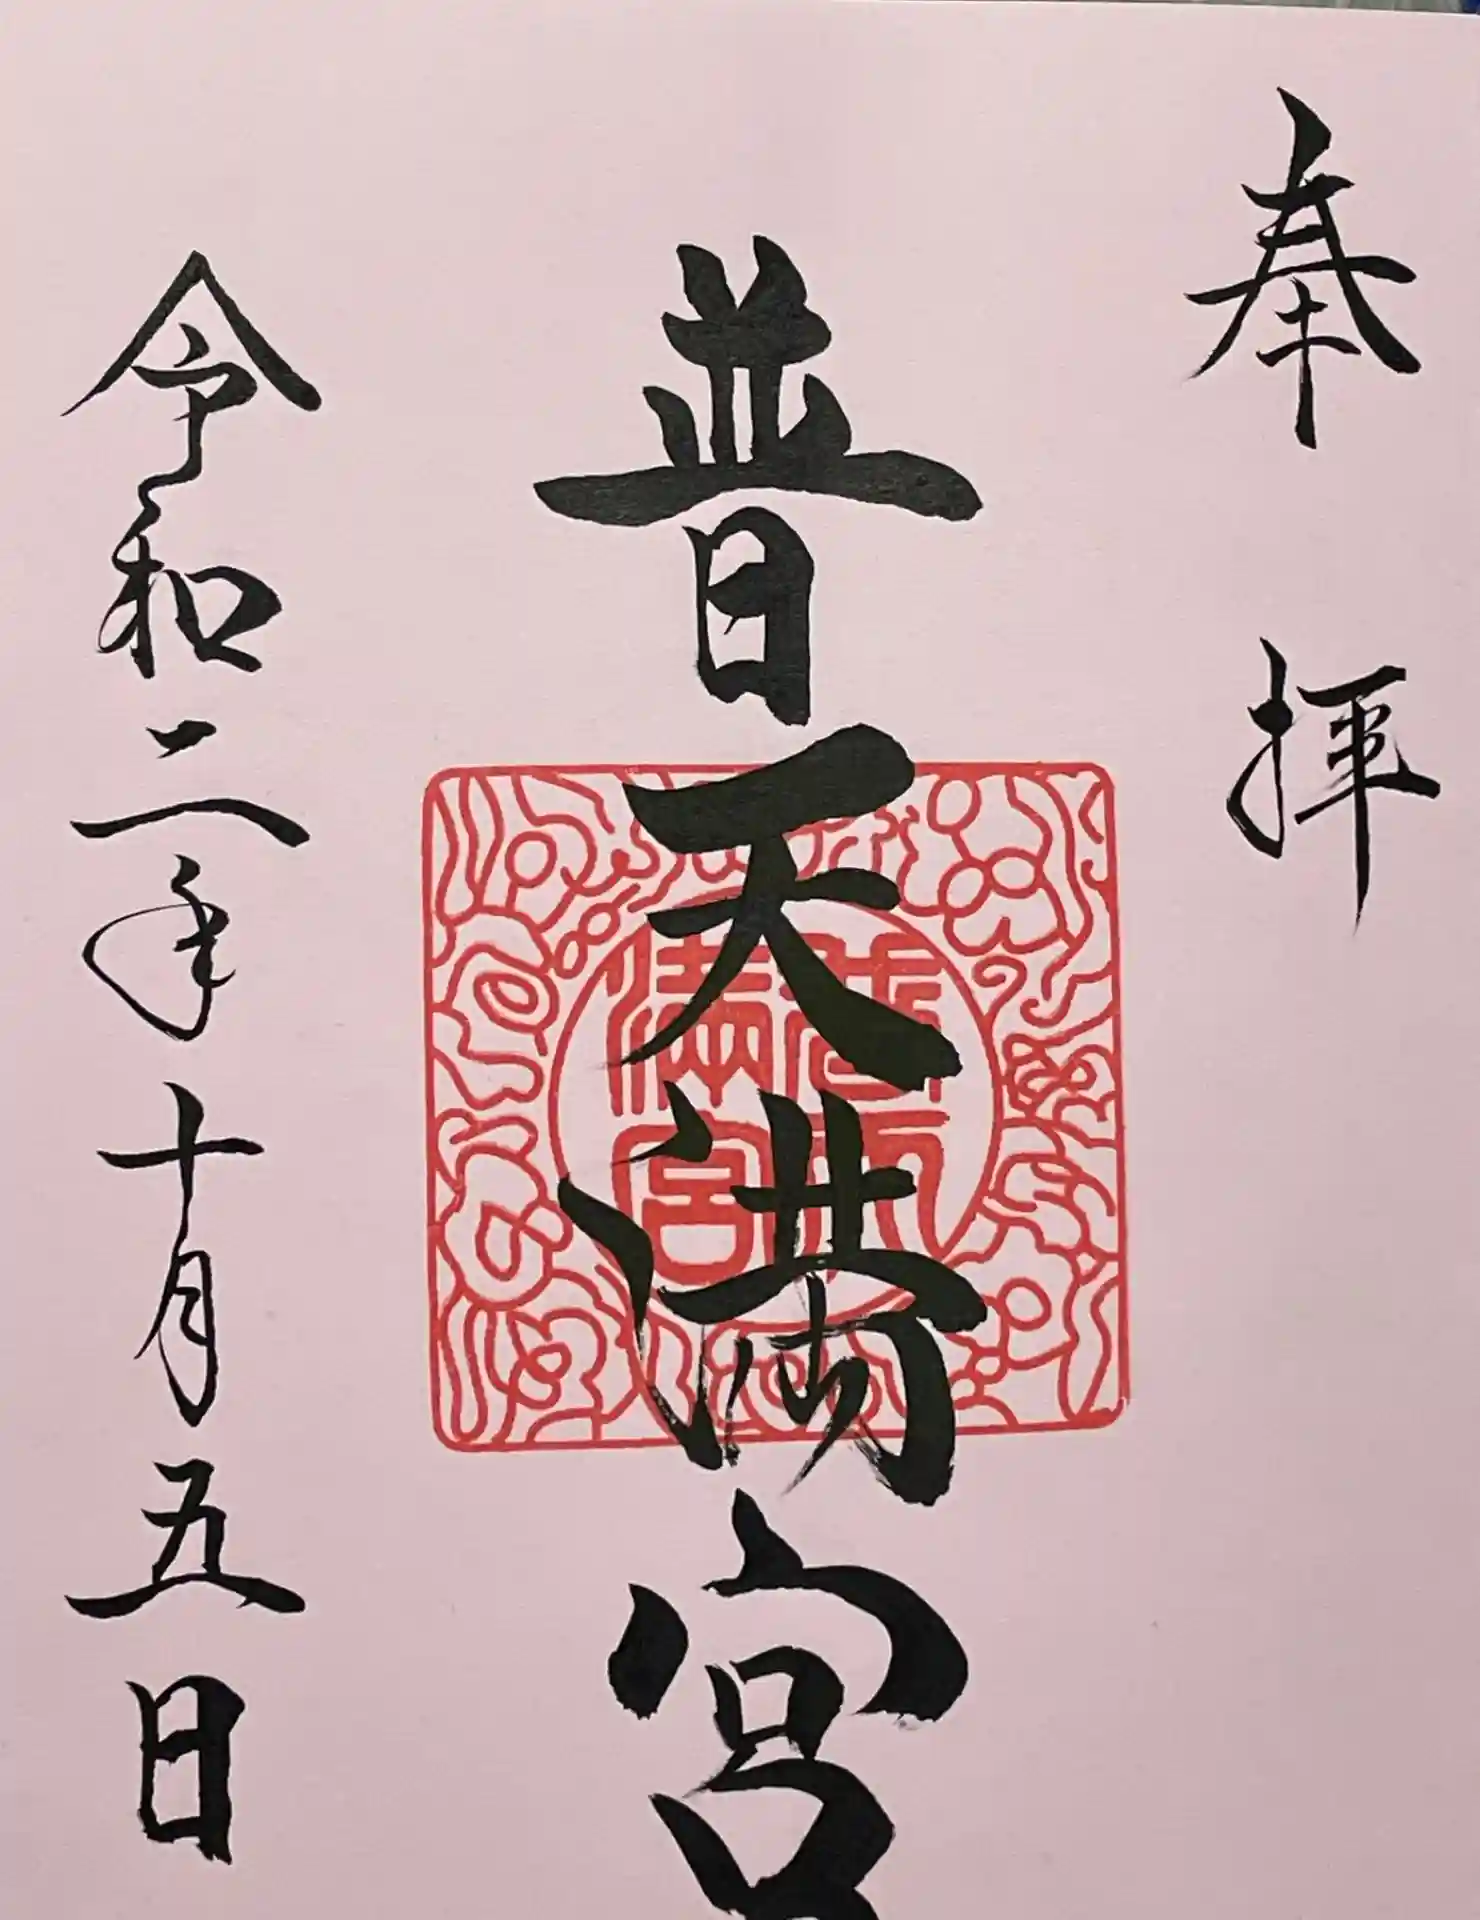 奉拝
普天満宮
普天
満宮
令和二年十月五日